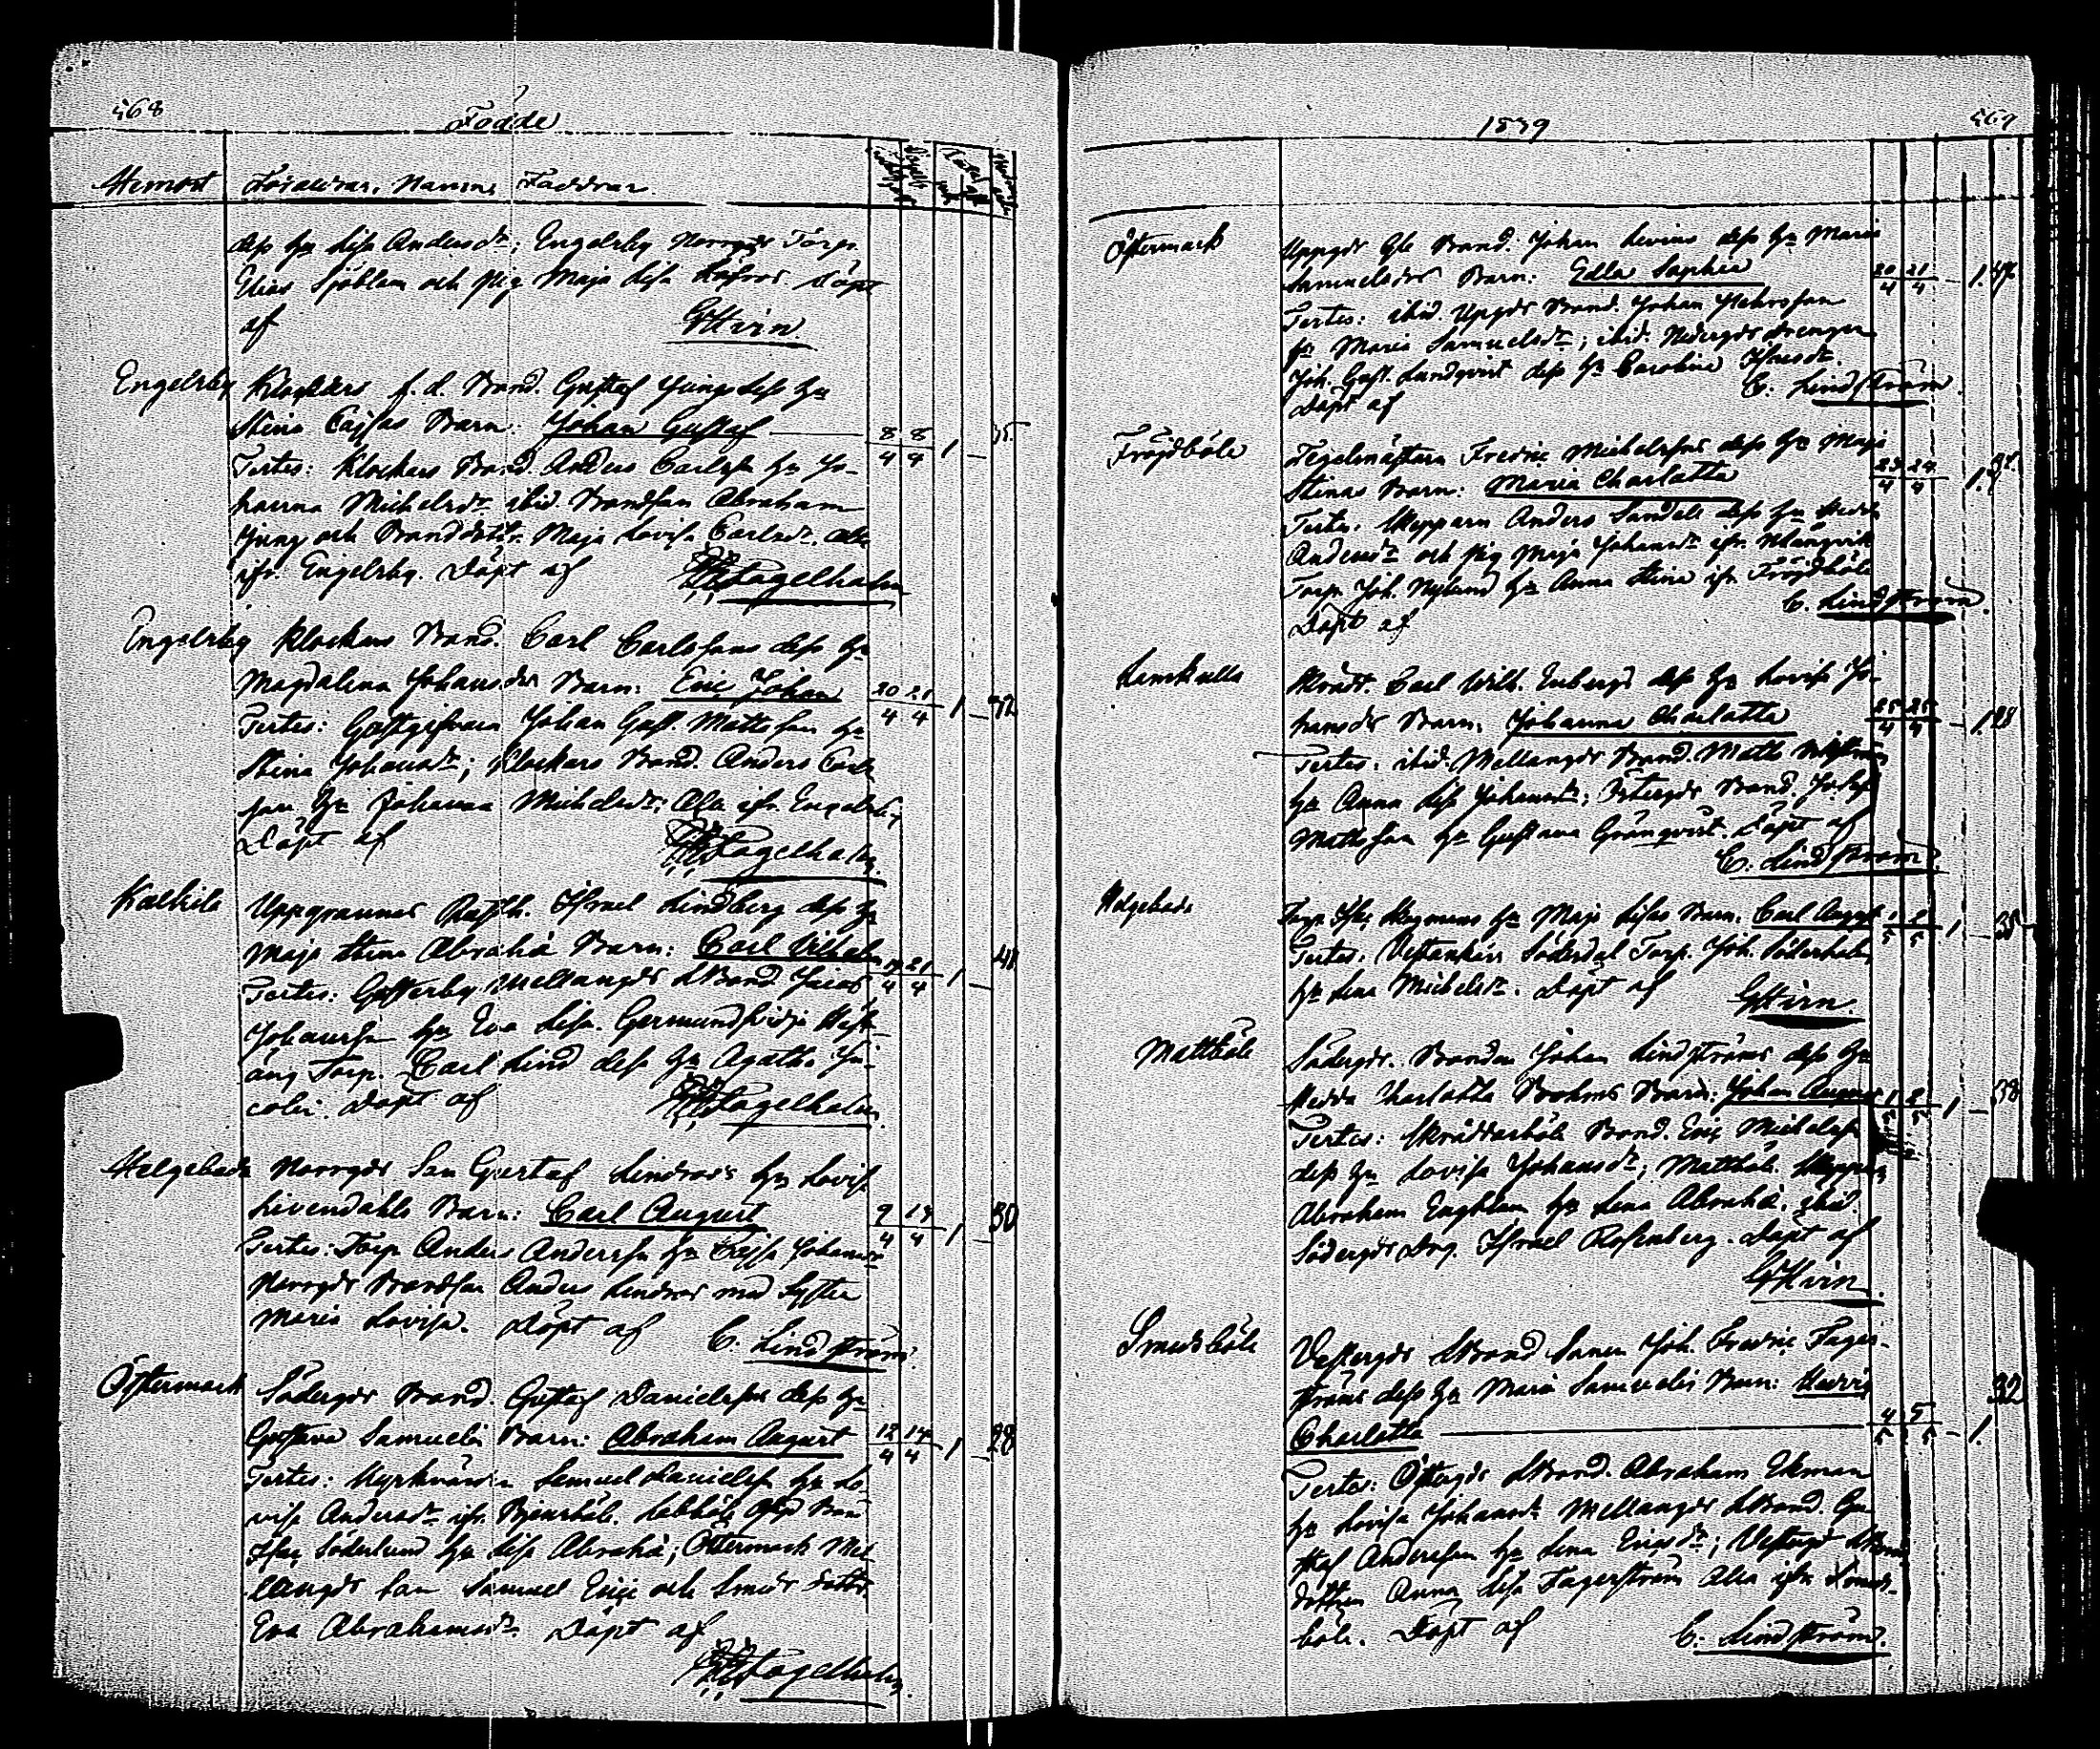 568
Födde
Hemort Föräldrar, Namn, Faddrar.
dess hu Lisa Andersdr; Engelsby Norrgds Torp.
Elias Sjöblom och pig Maja Lisa Döpt
af GHirn
Engelsby Klockars f. d. Bond. Gustaf Ljungs dess hu
Stina Cajsas Barn: Johan Gustaf 8/4 8/4 1 – 35.
Testes: Klockars Bond. Anders Carlss. hu Jo-
hanna Michelsdr ibid. Bondson Abraham
Ljung och Bonddottr. Maja Lovisa Carlsdr. Alla
ifr. Engelsby. Döpt af Fagelholm
Engelsby Klockars Bond. Carl Carlssons dess hu
Magdalena Johansdrs Barn: Eric Johan 20/4 21/4 1 – 32
Testes: Gästgifvaren Johan Gust. Mattsson hu
Stina Johansdr; Klockars Bond. Anders Carls-
son hu Johanna Michelsdr; Alla ifr. Engelsby
Döpt af Fagelholm
Kalkila Israel Lindberg dess hu
Maja Stina Abrahä Barn: Carl Vilhelm 21/4 1 – 41.
Testes: Mellangds Bond
Johanss. hu Eva Lisa. Germundsvidja
äng Torp. Carl Lind dess hu Agatha Ja-
cobi. Döpt af Fagelholm
Helgeboda Norrgds Son Gustaf Lindroos hu Lovisa
Livendahls Barn: Carl August 9/4 13/4 1 – 30
Testes: Torp Anders Anderss. hu Cajsa Johansdr
Norrgds Bondson Anders Lindroos med Syster
Maria Lovisa. Döpt af C. Lindström.
Östermark Södergds Bond. Gustaf Danielssons dess hu
Gustava Samuelis Barn: Abraham August 12/4 14/4 1 – 28
Testes: Kyrkvärden Samuel Danielss. hu Lo-
visa Andersdr ifr. Bjensböle. Labböle
Söderlund hu Lisa Abrahä; Östermark Mel-
langds Son Samuel Erici och Smeds dottr.
Eva Abrahamsdr Döpt af
Fagelholm
1839 569
Östermark Uppgds Bond. Johan Levins dess hu Maria
Samuelsdrs Barn: Edla Sophia 20/4 21/4 – 1.
Testes: ibid. Upgds Bond. Johan
hu Maria Samuelsdr; ibid. Nedergds drengen
Joh. Gust. Lundqvist dess hu Carolina
Döpt af C. Lindström.
Fröjdböle Tegelmästarn Fredric Michelssons dess hu Maja
Stinas Barn: Maria Charlotta 23/4 24/4 – 1.
Testes. Skepparn Anders Sandell dess hu Hedda
Andersdr och pig Maja Johansdr ifr.
Torp. Joh. Nylund hu Anna Stina ifr Fröjdböle
Döpt af C. Lindström.
Lemkulla Skrädd. Carl Wilh. Enbergs dess hu Lovisa Jo-
hansdrs Barn: Johanna Charlotta 25/4 25/4 – 1. 28
Testes: ibid. Mellangds Bond. Matts
hu Anna Lisa Johansdr; Östergds Bond. Josef
Mattsson hu Gustava Grönqvist. Döpt af
C. Lindström.
Helgeboda Torp. Hagmans hu Maja Lisas Barn. Carl August 1/5 2/5 1 – 35
Testes: Vestankärr Söderdal Torp. Joh. Söderholm
hu Lena Michelsdr. Döpt af GHirn.
Mattböle Södergds. Bonden Johan Lindströms dess hu
Hedda Charlotta Bohms Barn: Johan August 1/5 2/5 1 – 38
Testes: Skräddarböle Bond. Eric Michelss.
dess hu Lovisa Johansdr; Mattböle Skeppar
Abraham Engblom hu Lena Abrahä. ibid.
Södergds Drg. Israel Rosenberg. Döpt af
GHirn.
Smedsböle Vestergds Bond Sonen Joh. Fredric Fager-
ströms dess hu Maria Samuelis Barn: Hedvig
Charlotta 4/5 5/5 – 1. 32
Testes: Östergds Bond. Abraham Ekman
hu Lovisa Johansdr Mellangds Bond. Gu-
staf Andersson hu Lena Ericsdr; Vestergds Bond
dottren Anna Lisa Fagerström Alla ifr Smeds-
böle. Döpt af C. Lindström.